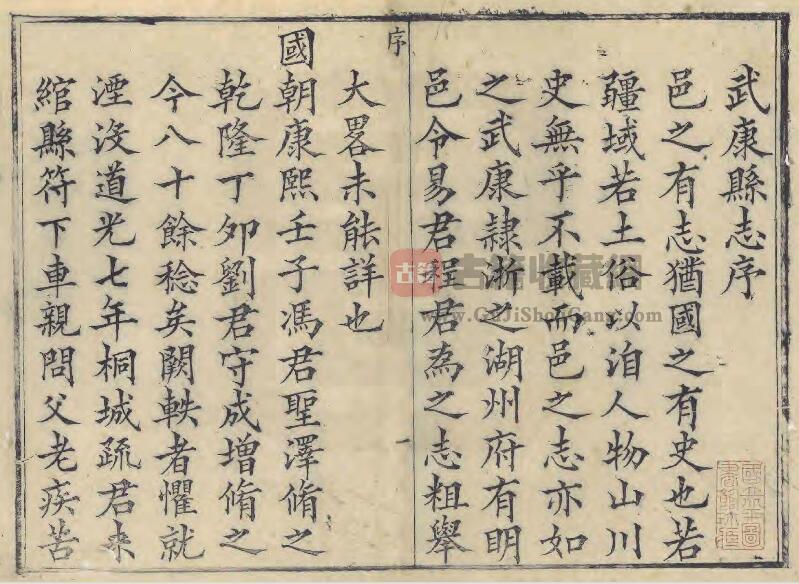 武康縣志序
邑之有志猶國之有史也若
疆域若土俗以洎人物山川
史無乎不載而邑之志亦如
之武康隷浙之湖州府有明
邑令易君程君為之志粗舉
序
一
大畧未能詳也
國朝康熙壬子馮君聖澤脩之
乾隆丁夘劉君守成增脩之
今八十餘稔矣闕軼者懼就
湮沒道光七年桐城疏君來
綰縣符下車親問父老疾苦
古籍收藏网
www.GuJiShouCang.com